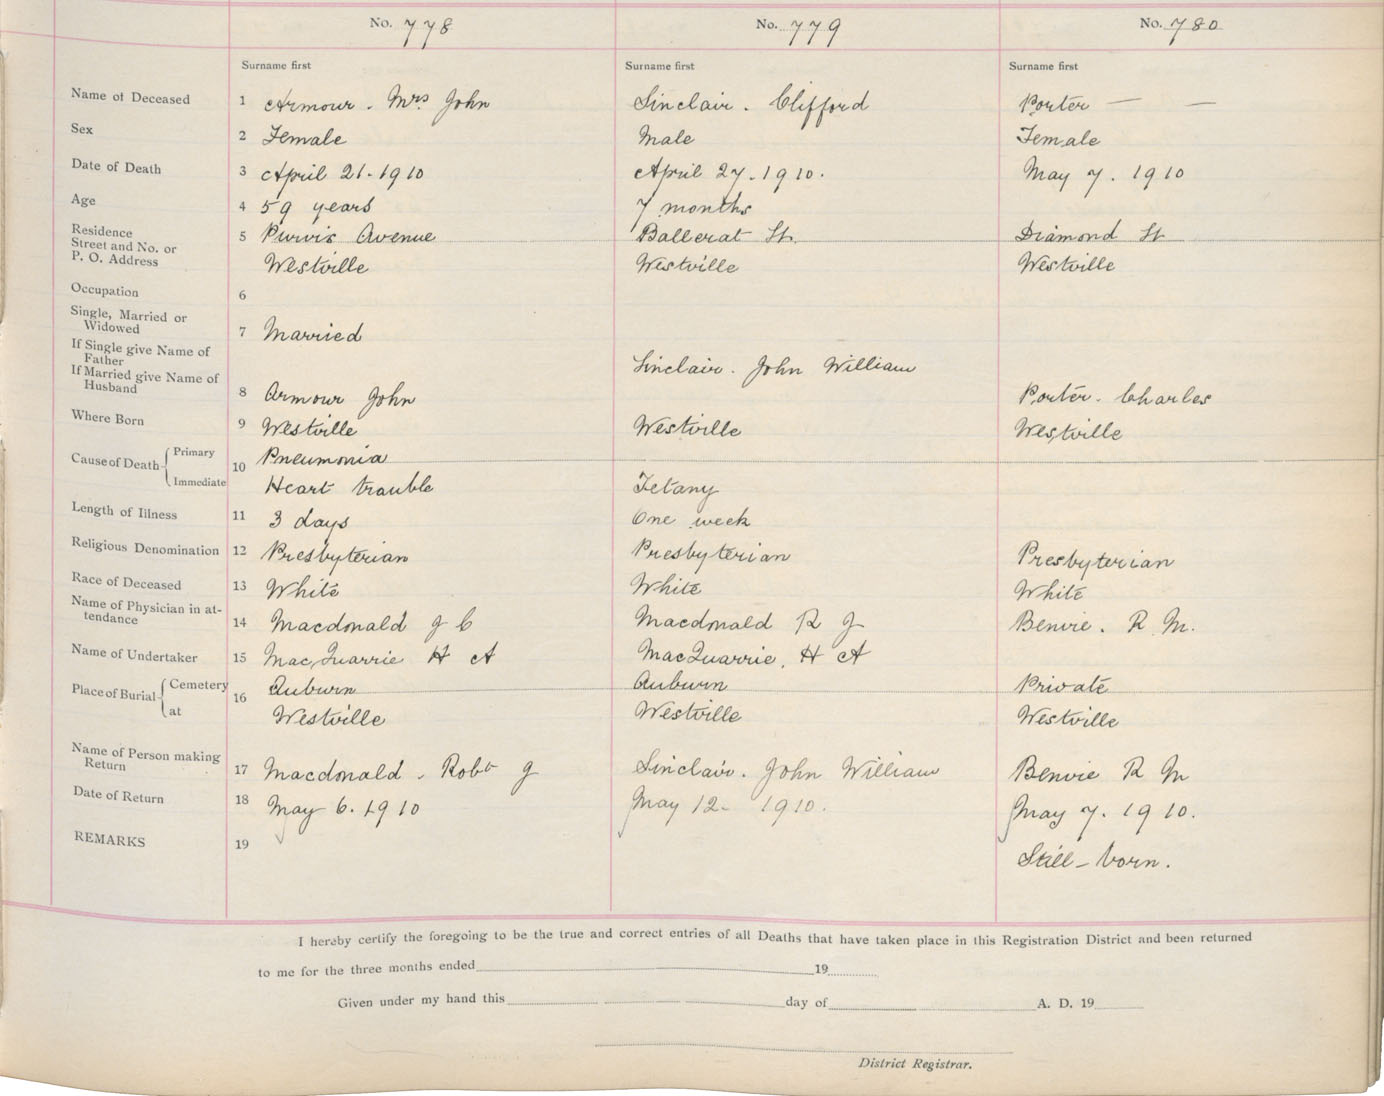 No. 778 No. 779 No. 780
Surname first Surname first Surname first
Name of Deceased 1 Armour. Mrs John Sinclair. Clifford Porter — —
Sex 2 Female Male Female
Date of Death 3 April 21-1910 April 27-1910. May 7. 1910
Age 4 59 years 7 months
Residence
Street and No. or 5 Purvis Avenue Ballerat St. Diamond St
P. O. Address Westville Westville Westville
Occupation 6
Single, Married or
Widowed 7 Married
If Single give Name of
Father Sinclair. John William
If Married give Name of
Husband 8 Armour John Porter. Charles
Where Born 9 Westville Westville Westville
Cause of Death Primary 10 Pneumonia
Immediate Heart trouble Tetany
Length of Illness 11 3 days One week
Religious Denomination 12 Presbyterian Presbyterian Presbyterian
Race of Deceased 13 White White White
Name of Physician in at-
tendance 14 Macdonald J C Macdonald R J Benvie. R. M.
Name of Undertaker 15 MacQuarrie H A MacQuarrie. H A
Place of Burial Cemetery 16 Auburn Auburn Private
at Westville Westville Westville
Name of Person making
Return 17 Macdonald. Robt J Sinclair. John William Benvie R M
Date of Return 18 May 6. 1910 May 12- 1910. May 7. 1910.
REMARKS 19 Still-born.
I hereby certify the foregoing to be the true and correct entries of all Deaths that have taken place in this Registration District and been returned
to me for the three months ended 19
Given under my hand this day of A. D. 19
District Registrar.